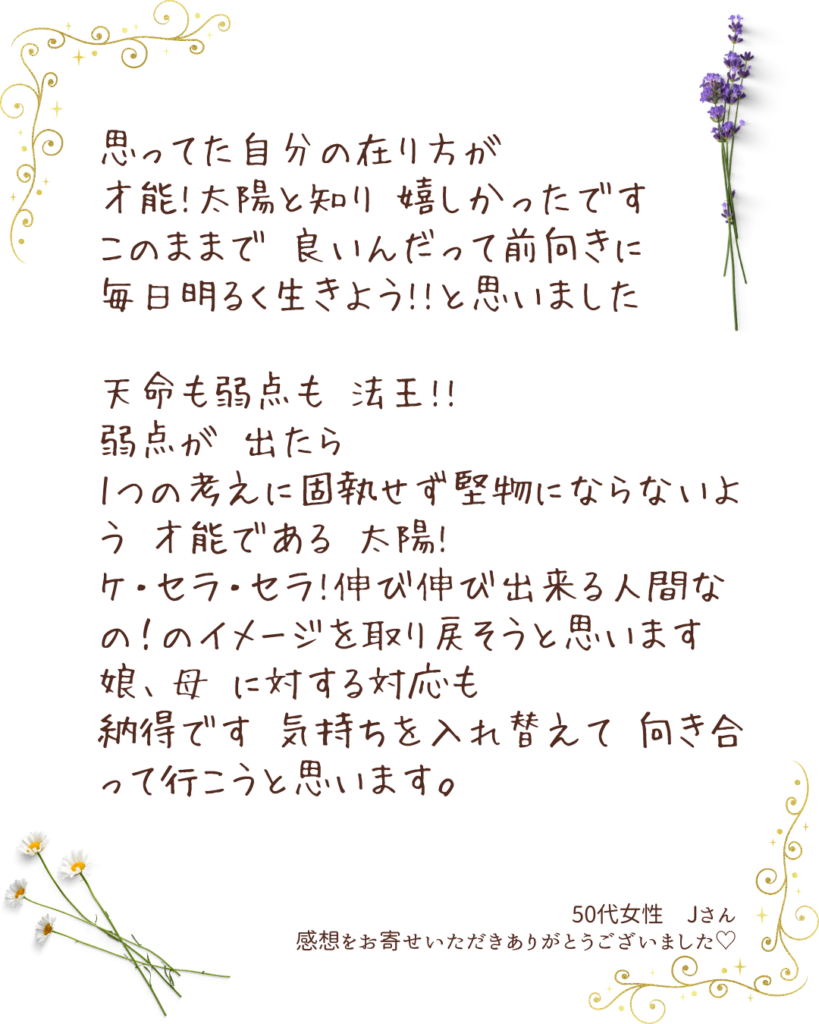 思ってた自分の在り方が
才能!太陽と知り 嬉しかったです
このままで 良いんだって前向きに
毎日明るく生きよう!!と思いました
天命も弱点も 法王!!
弱点が 出たら
1つの考えに固執せず堅物にならないよ
う 才能である 太陽!
ケ・セラ・セラ!伸び伸び出来る人間な
の!のイメージを取り戻そうと思います
娘、母 に対する対応も
納得です 気持ちを入れ替えて 向き合
って行こうと思います。
50代女性 Jさん
感想をお寄せいただきありがとうございました♡